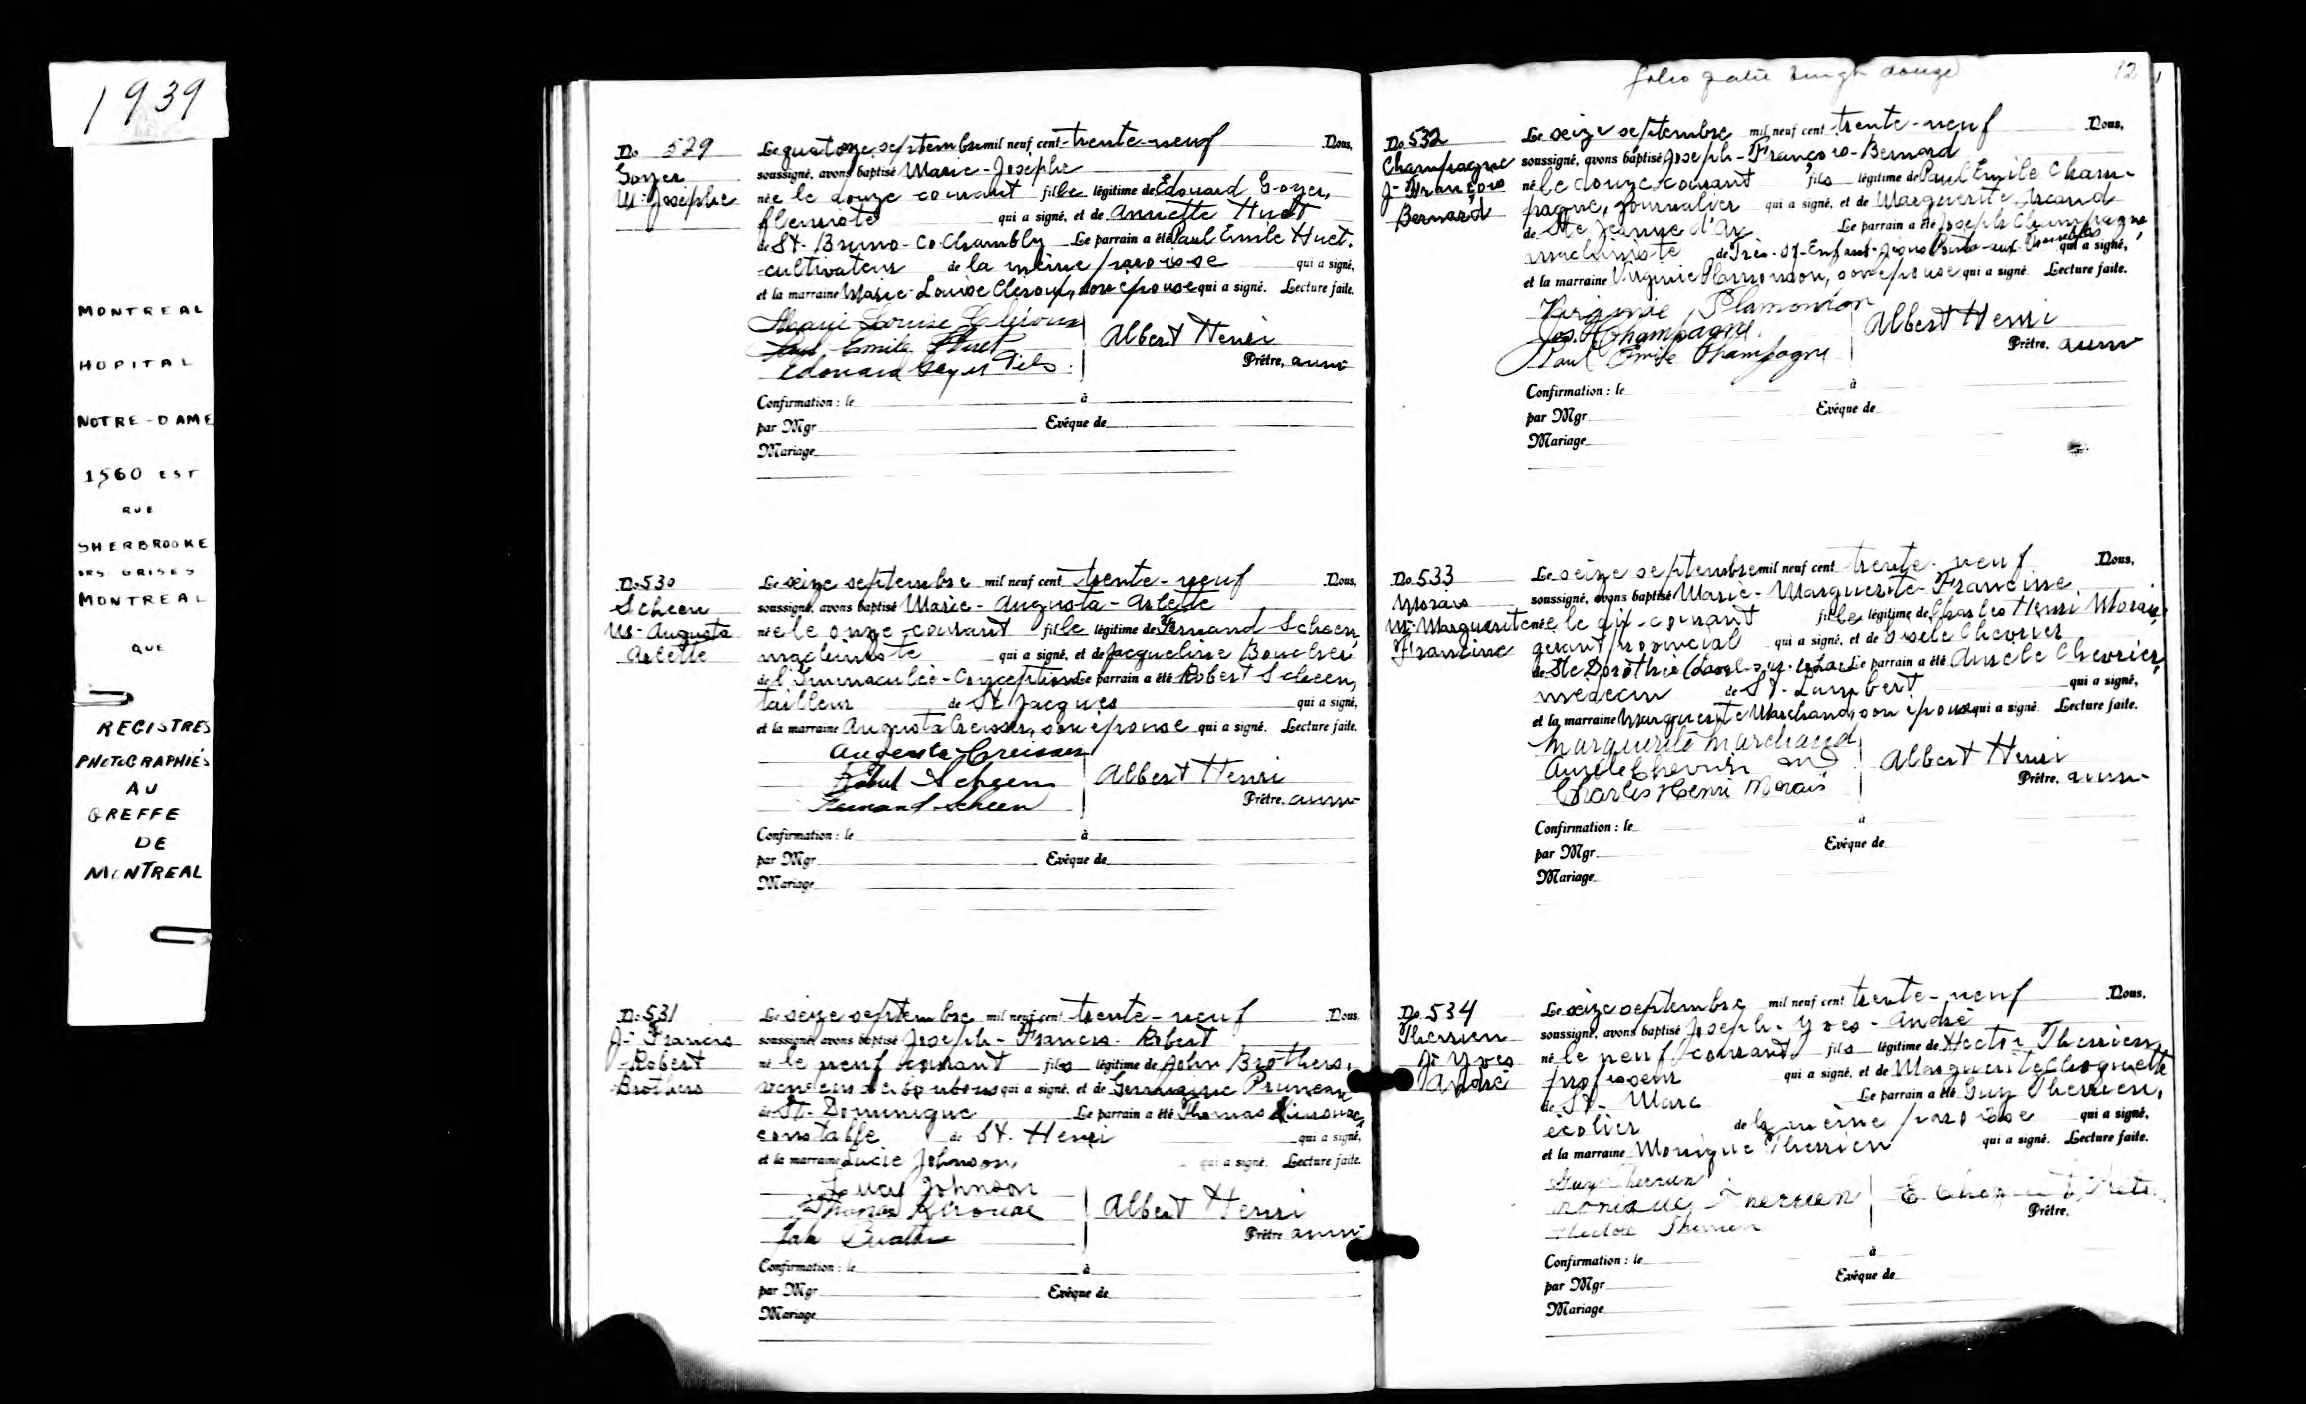 1939
MONTREAL
HOPITAL
NOTRE-DAME
1560 EST
RUE
SHERBROOKE
MONTREAL
QUE
REGISTRES
PHOTOGRAPHIÉS
AU
GREFFE
DE
MONTREAL
No 529
Goyer
M-Josephe
Le quatorze septembre mil neuf cent trente-neuf Nous,
soussigné, avons baptisé Marie-Josephe
née le douze courant fille légitime de Edouard Goyer,
fleuriste qui a signé, et de Annette Huet
de St-Bruno-Co. Chambly Le parrain a été Paul Emile Huet,
cultivateur de la même paroisse qui a signé,
et la marraine Marie-Louise Cléroux, son épouse qui a signé. Lecture faite.
Marie Louise Cléroux
Paul Emile Huet
Edouard Goyer Fils
Albert Henri
Prêtre, aum
Confirmation : le à
par Mgr Evêque de
Mariage
No 530
Scheen
M-Augusta
Arlette
Le seize septembre mil neuf cent trente-neuf Nous,
soussigné, avons baptisé Marie-Augusta-Arlette
née le onze courant fille légitime de Fernand Scheen,
machiniste qui a signé, et de Jacqueline Boucher
de l'Immaculée-Conception Le parrain a été Robert Scheen,
tailleur de St Jacques qui a signé,
et la marraine Augusta Creisser, son épouse qui a signé. Lecture faite.
Augusta Creisser
Scheen
Fernand Scheen
Albert Henri
Prêtre, aum
Confirmation : le à
par Mgr Evêque de
Mariage
No 531
J-Francis
-Robert
Brothers
Le seize septembre mil neuf cent trente-neuf Nous,
soussigné, avons baptisé Joseph-Francis-Robert
né le neuf courant fils légitime de John Brothers,
vendeur qui a signé, et de Germaine Pruneau
de St-Dominique Le parrain a été Thomas Kirouac,
constable de St. Henri qui a signé,
et la marraine Lucie Johnson, qui a signé. Lecture faite.
Lucy Johnson
Thomas Kirouac
Albert Henri
Prêtre aum
Confirmation : le à
par Mgr Evêque de
Mariage
folio quatre vingt douze
No 532
Champagne
J-François
Bernard
Le seize septembre mil neuf cent trente-neuf Nous,
soussigné, avons baptisé Joseph-François-Bernard
né le douze courant fils légitime de Paul Emile Cham-
pagne, journalier qui a signé, et de Marguerite Arcand
de Ste Jeanne d'Arc Le parrain a été Joseph Champagne,
machiniste de Très-St-Enfant-Jésus Pointe-aux-Trembles qui a signé,
et la marraine Virginie Plamondon, son épouse qui a signé. Lecture faite.
Virginie Plamondon
Jos. Champagne
Paul Emile Champagne
Albert Henri
Prêtre, aum
Confirmation : le à
par Mgr Evêque de
Mariage
No 533
Morais
M-Marguerite
Francine
Le seize septembre mil neuf cent trente-neuf Nous,
soussigné, avons baptisé Marie-Marguerite-Francine
née le dix courant fille légitime de Charles Henri Morais,
gérant provincial qui a signé, et de Gisèle Chevrier
de Ste Dorothée Le parrain a été Anselc Chevrier,
médecin de St-Lambert qui a signé,
et la marraine Marguerite Marchand, son épouse qui a signé. Lecture faite.
Marguerite Marchand
Chevrier MD
Charles Henri Morais
Albert Henri
Prêtre, aum
Confirmation : le à
par Mgr Evêque de
Mariage
No 534
Therrien
J-Yves
André
Le seize septembre mil neuf cent trente-neuf Nous,
soussigné, avons baptisé Joseph-Yves-André
né le neuf courant fils légitime de Hector Therrien,
professeur qui a signé, et de Marguerite Choquette
de St-Marc Le parrain a été Guy Therrien,
écolier de la même paroisse qui a signé,
et la marraine Monique Therrien qui a signé. Lecture faite.
Guy Therrien
Monique Therrien
Hector Therrien
Prêtre,
Confirmation : le à
par Mgr Evêque de
Mariage